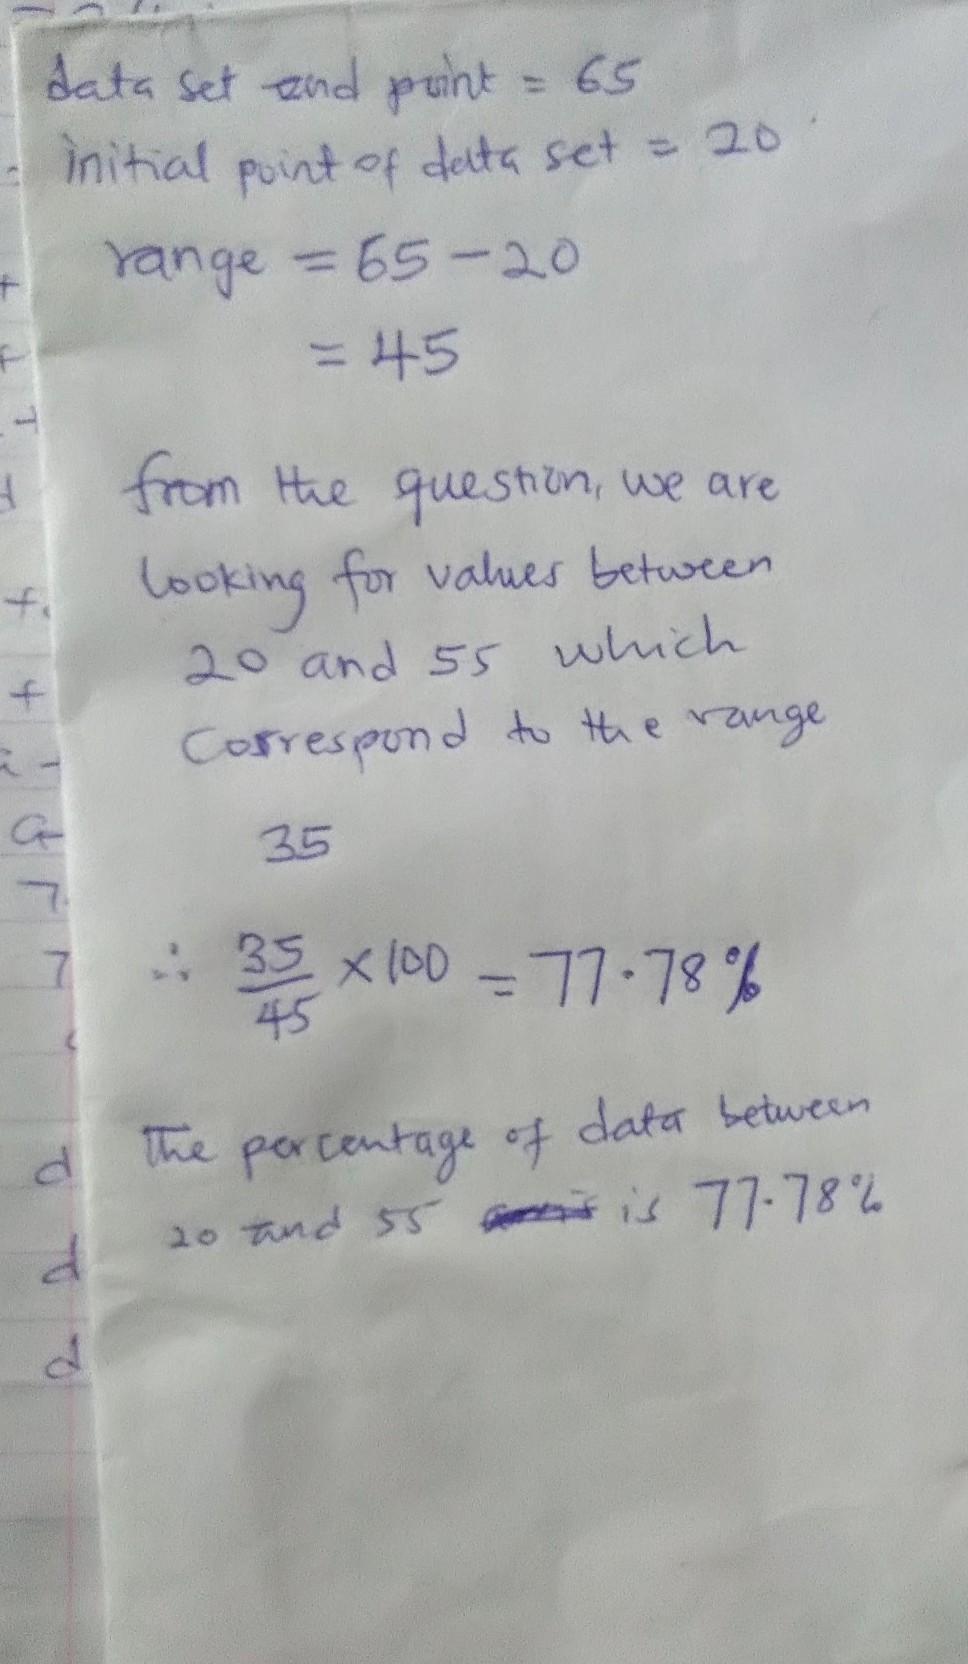 data set end point = 65
initial point of data set = 20
range = 65 - 20
= 45
from the question, we are
looking for values between
20 and 55 which
correspond to the range
35
∴ 35/45 × 100 = 77.78%
The percentage of data between
20 and 55 is 77.78%